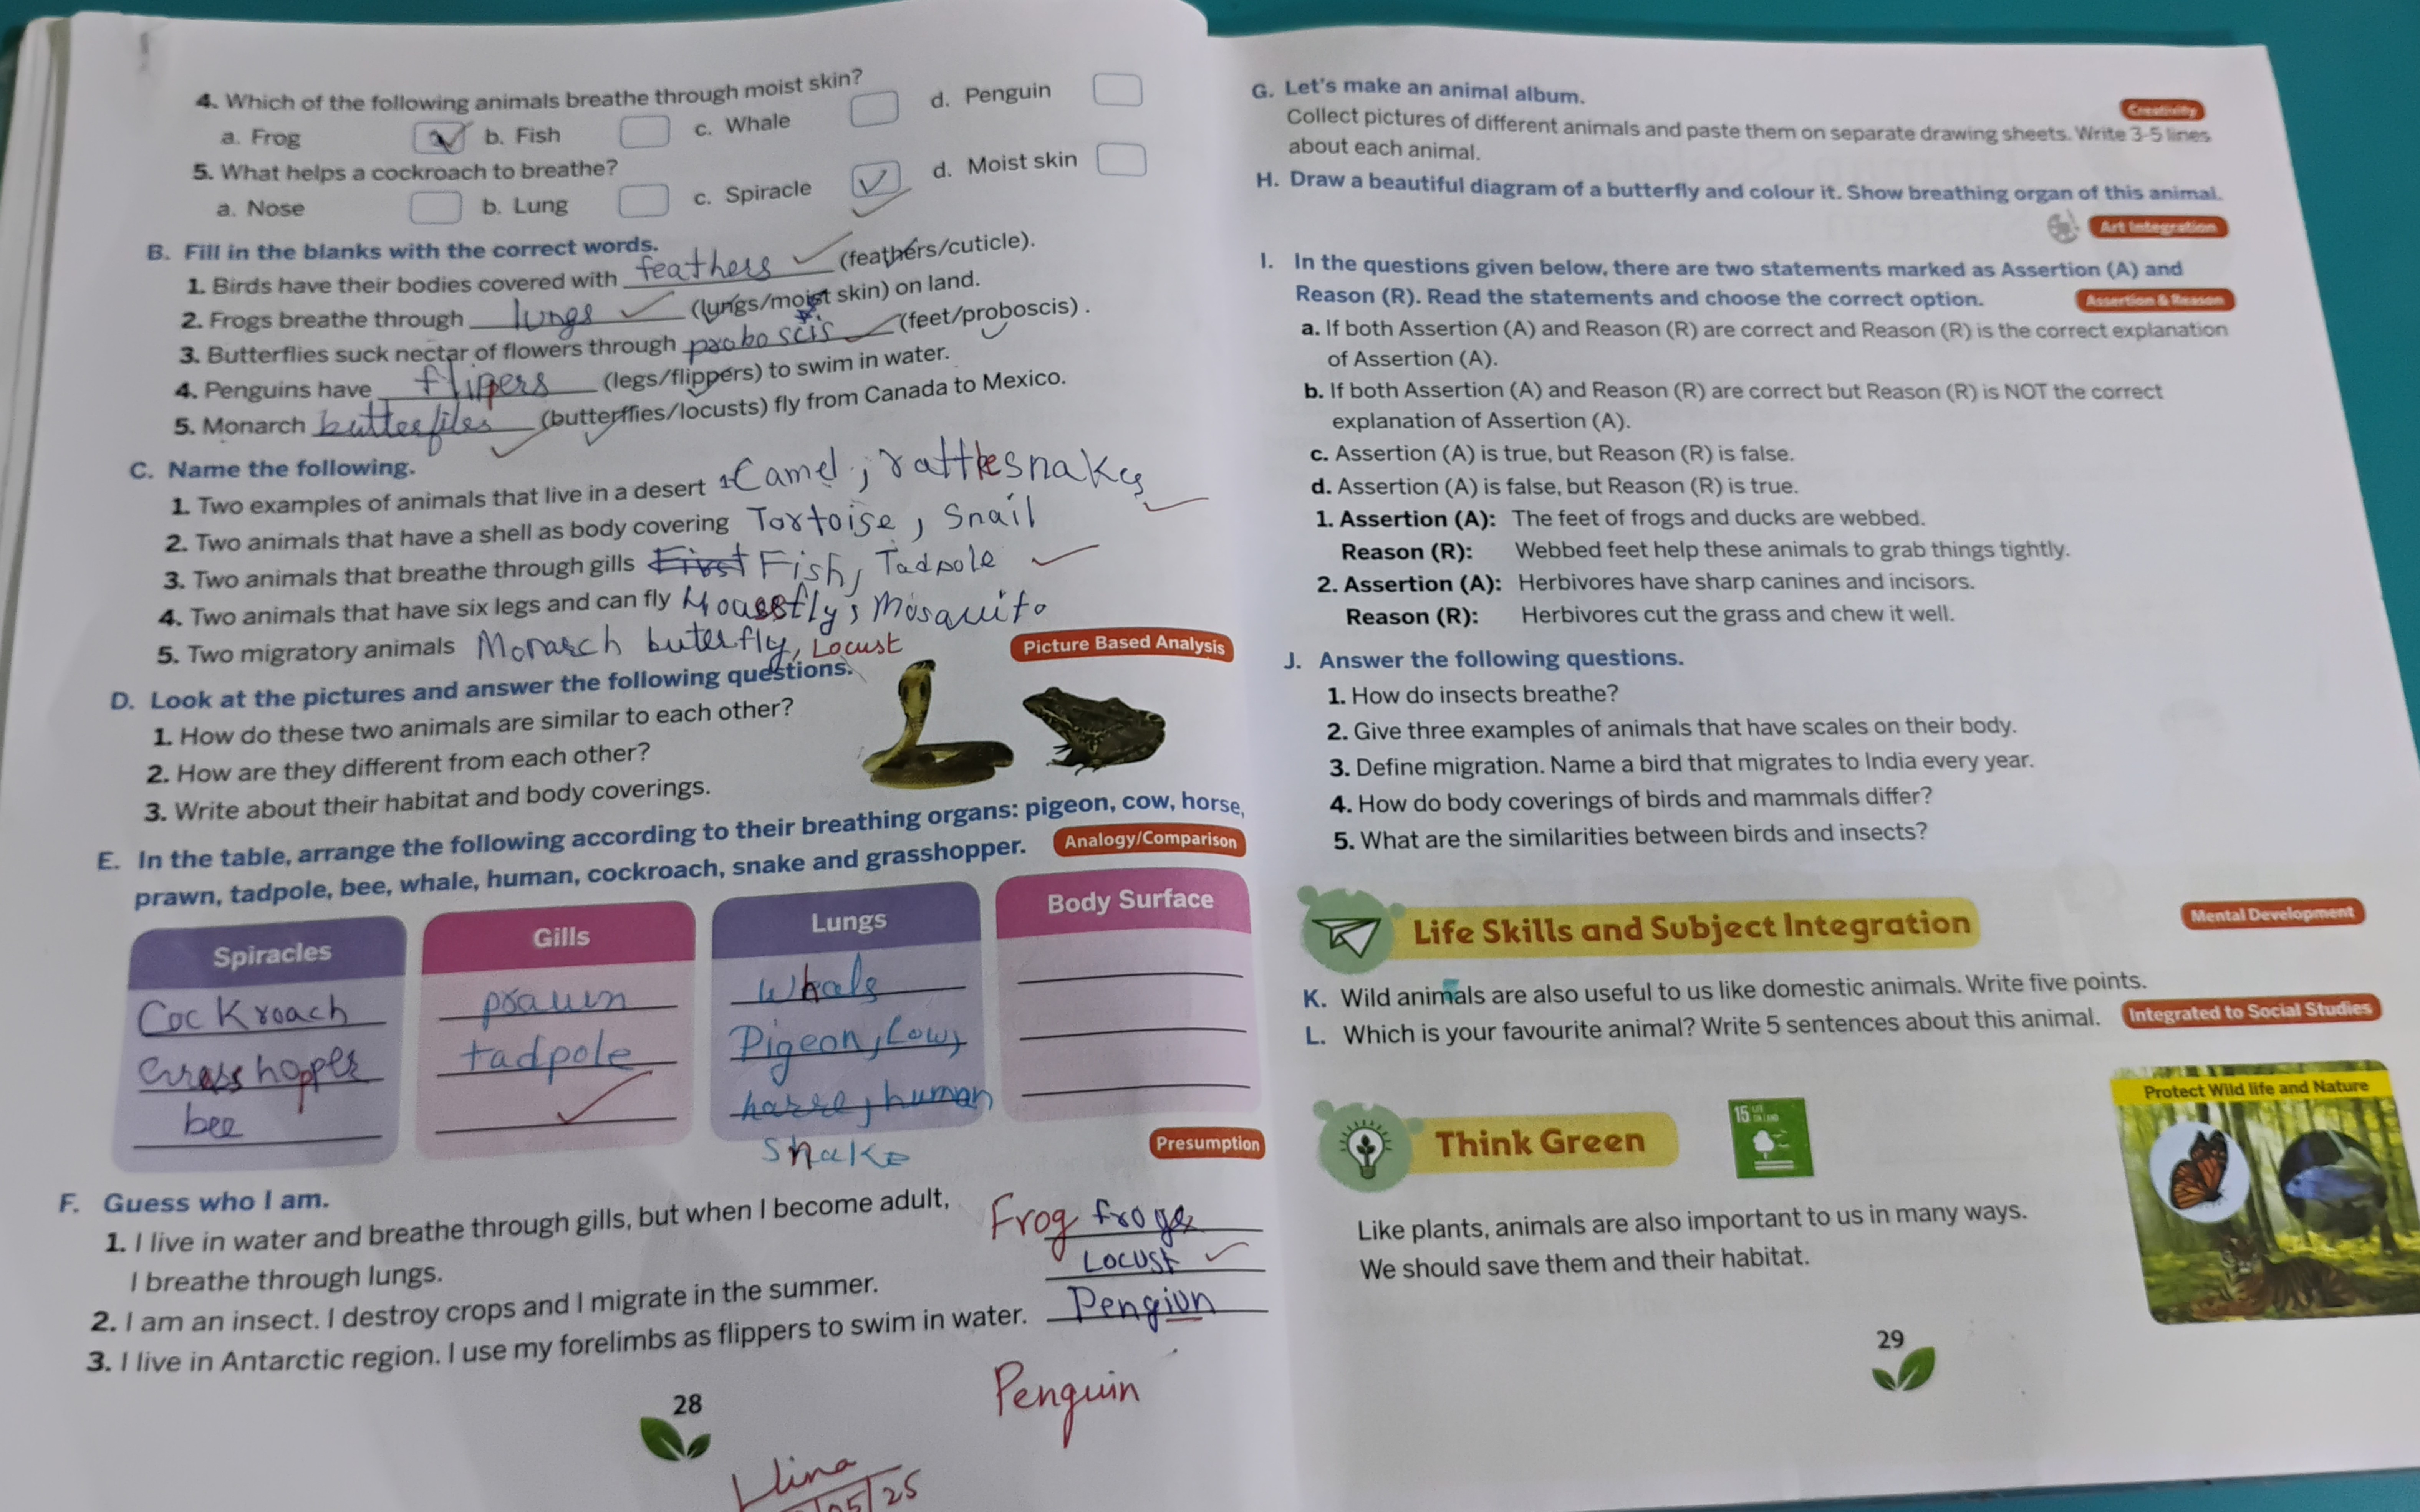 4. Which of the following animals breathe through moist skin?
a. Frog b. Fish c. Whale d. Penguin
5. What helps a cockroach to breathe?
a. Nose b. Lung c. Spiracle d. Moist skin
B. Fill in the blanks with the correct words.
1. Birds have their bodies covered with feathers (feathers/cuticle).
2. Frogs breathe through lungs (lungs/moist skin) on land.
3. Butterflies suck nectar of flowers through proboscis (feet/proboscis) .
4. Penguins have flippers (legs/flippers) to swim in water.
5. Monarch butterfiles (butterflies/locusts) fly from Canada to Mexico.
C. Name the following.
1. Two examples of animals that live in a desert Camel, rattlesnake
2. Two animals that have a shell as body covering Tortoise, Snail
3. Two animals that breathe through gills First Fish, Tadpole
4. Two animals that have six legs and can fly Housefly, Mosquito
5. Two migratory animals Monarch buterfly, Locust
Picture Based Analysis
D. Look at the pictures and answer the following questions.
1. How do these two animals are similar to each other?
2. How are they different from each other?
3. Write about their habitat and body coverings.
E. In the table, arrange the following according to their breathing organs: pigeon, cow, horse,
prawn, tadpole, bee, whale, human, cockroach, snake and grasshopper. Analogy/Comparison
Spiracles Gills Lungs Body Surface
Cockroach prawn Whale
Grasshopper tadpole Pigeon, Cow,
bee horse, human
Snake
Presumption
F. Guess who I am.
1. I live in water and breathe through gills, but when I become adult, Frog frog
I breathe through lungs.
2. I am an insect. I destroy crops and I migrate in the summer. Locust
3. I live in Antarctic region. I use my forelimbs as flippers to swim in water. Pengiun
Penguin
28
G. Let's make an animal album.
Creativity
Collect pictures of different animals and paste them on separate drawing sheets. Write 3-5 lines
about each animal.
H. Draw a beautiful diagram of a butterfly and colour it. Show breathing organ of this animal.
Art Integration
I. In the questions given below, there are two statements marked as Assertion (A) and
Reason (R). Read the statements and choose the correct option. Assertion & Reason
a. If both Assertion (A) and Reason (R) are correct and Reason (R) is the correct explanation
of Assertion (A).
b. If both Assertion (A) and Reason (R) are correct but Reason (R) is NOT the correct
explanation of Assertion (A).
c. Assertion (A) is true, but Reason (R) is false.
d. Assertion (A) is false, but Reason (R) is true.
1. Assertion (A): The feet of frogs and ducks are webbed.
Reason (R): Webbed feet help these animals to grab things tightly.
2. Assertion (A): Herbivores have sharp canines and incisors.
Reason (R): Herbivores cut the grass and chew it well.
J. Answer the following questions.
1. How do insects breathe?
2. Give three examples of animals that have scales on their body.
3. Define migration. Name a bird that migrates to India every year.
4. How do body coverings of birds and mammals differ?
5. What are the similarities between birds and insects?
Life Skills and Subject Integration
Mental Development
K. Wild animals are also useful to us like domestic animals. Write five points.
L. Which is your favourite animal? Write 5 sentences about this animal. Integrated to Social Studies
Think Green
15
Protect Wild life and Nature
Like plants, animals are also important to us in many ways.
We should save them and their habitat.
29